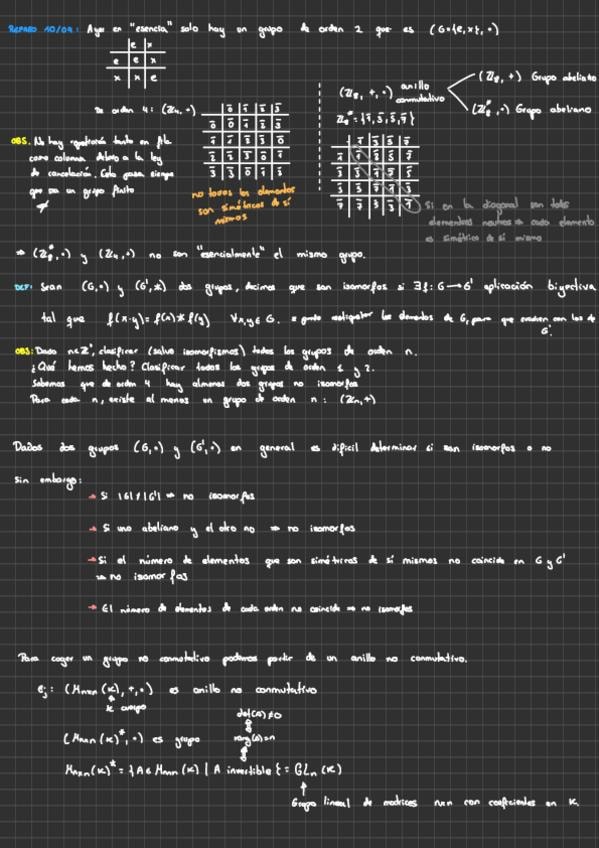 REPASO 10/09: Ayer en "esencia" solo hay un grupo de orden 2 que es (G={e,x}, ·)
e x
e e x
x x e
De orden 4: (Z₄, ·)
0̄ 1̄ 2̄ 3̄
0̄ 0̄ 1̄ 2̄ 3̄
1̄ 1̄ 2̄ 3̄ 0̄
2̄ 2̄ 3̄ 0̄ 1̄
3̄ 3̄ 0̄ 1̄ 2̄
no todos los elementos
son simétricos de sí
mismos
OBS. No hay tanto en fila
como columna debido a la ley
de cancelación. Esto pasa siempre
que sea un grupo finito
(Z₈, +, ·) anillo conmutativo
(Z₈, +) Grupo abeliano
(Z₈*, ·) Grupo abeliano
Z₈* = {1̄, 3̄, 5̄, 7̄}
1̄ 3̄ 5̄ 7̄
1̄ 1̄ 3̄ 5̄ 7̄
3̄ 3̄ 1̄ 7̄ 5̄
5̄ 5̄ 7̄ 1̄ 3̄
7̄ 7̄ 5̄ 3̄ 1̄
Si en la diagonal son todo
elementos neutros ⇒ cada elemento
es simétrico de sí mismo
⇒ (Z₈*, ·) y (Z₄, ·) no son "esencialmente" el mismo grupo.
DEF: Sean (G, ·) y (G', *) dos grupos, decimos que son isomorfos si ∃ f: G → G' aplicación biyectiva
tal que f(x·y) = f(x) * f(y) ∀x,y ∈ G. los elementos de G, para que con los de G'.
OBS: Dado n∈Z⁺, clasificar (salvo isomorfismos) todos los grupos de orden n.
¿Qué hemos hecho? Clasificar todos los grupos de orden 1 y 2.
Sabemos que de orden 4 hay almenos dos grupos no isomorfos
Para cada n, existe al menos un grupo de orden n: (Zₙ, +)
Dados dos grupos (G, ·) y (G', ·) en general es difícil determinar si son isomorfos o no
Sin embargo:
→ Si |G| ≠ |G'| ⇒ no isomorfos
→ Si uno abeliano y el otro no ⇒ no isomorfos
→ Si el número de elementos que son simétricos de sí mismos no coincide en G y G'
⇒ no isomorfos
→ El número de elementos de cada orden no coincide ⇒ no isomorfos
Para coger un grupo no conmutativo podemos partir de un anillo no conmutativo.
ej: (Mₙₓₙ(K), +, ·) es anillo no conmutativo
K cuerpo
det(A)≠0
(Mₙₓₙ(K)*, ·) es grupo
rang(A)=n
Mₙₓₙ(K)* = {A ∈ Mₙₓₙ(K) | A invertible} = GLₙ(K)
Grupo lineal de matrices nxn con coeficientes en K.